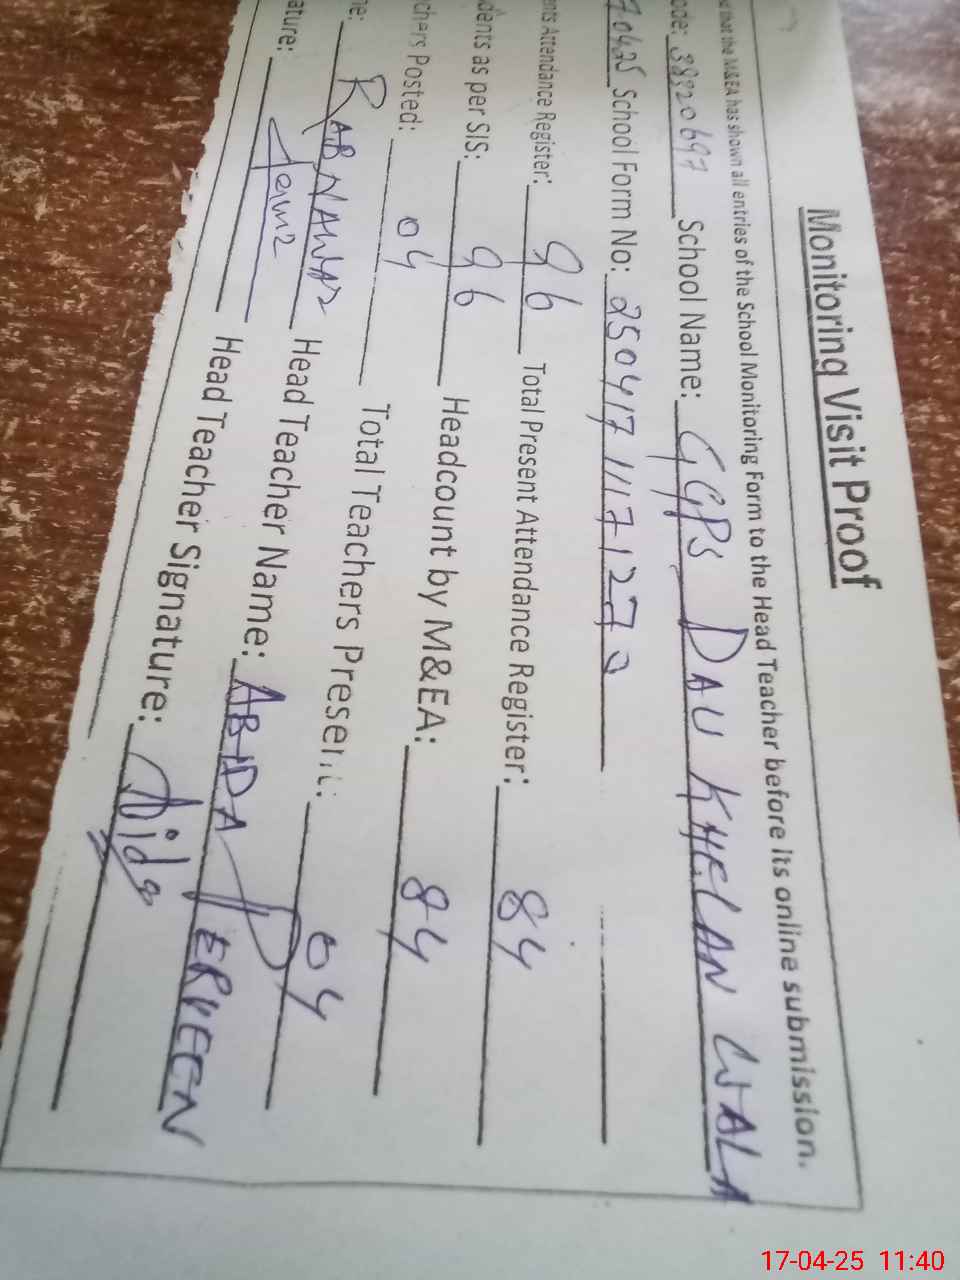 Monitoring Visit Proof
that the M&EA has shown all entries of the School Monitoring Form to the Head Teacher before its online submission.
ode: 38920697 School Name: GGPS DAU KHELAN WALA
70425 School Form No: 250417111712770
ents Attendance Register: 96 Total Present Attendance Register: 84
dents as per SIS: 96 Headcount by M&EA: 84
chers Posted: 04 Total Teachers Present: 04
me: RAB NAWAZ Head Teacher Name: ABIDA PERVEEN
ature: Head Teacher Signature: Abida
17-04-25 11:40